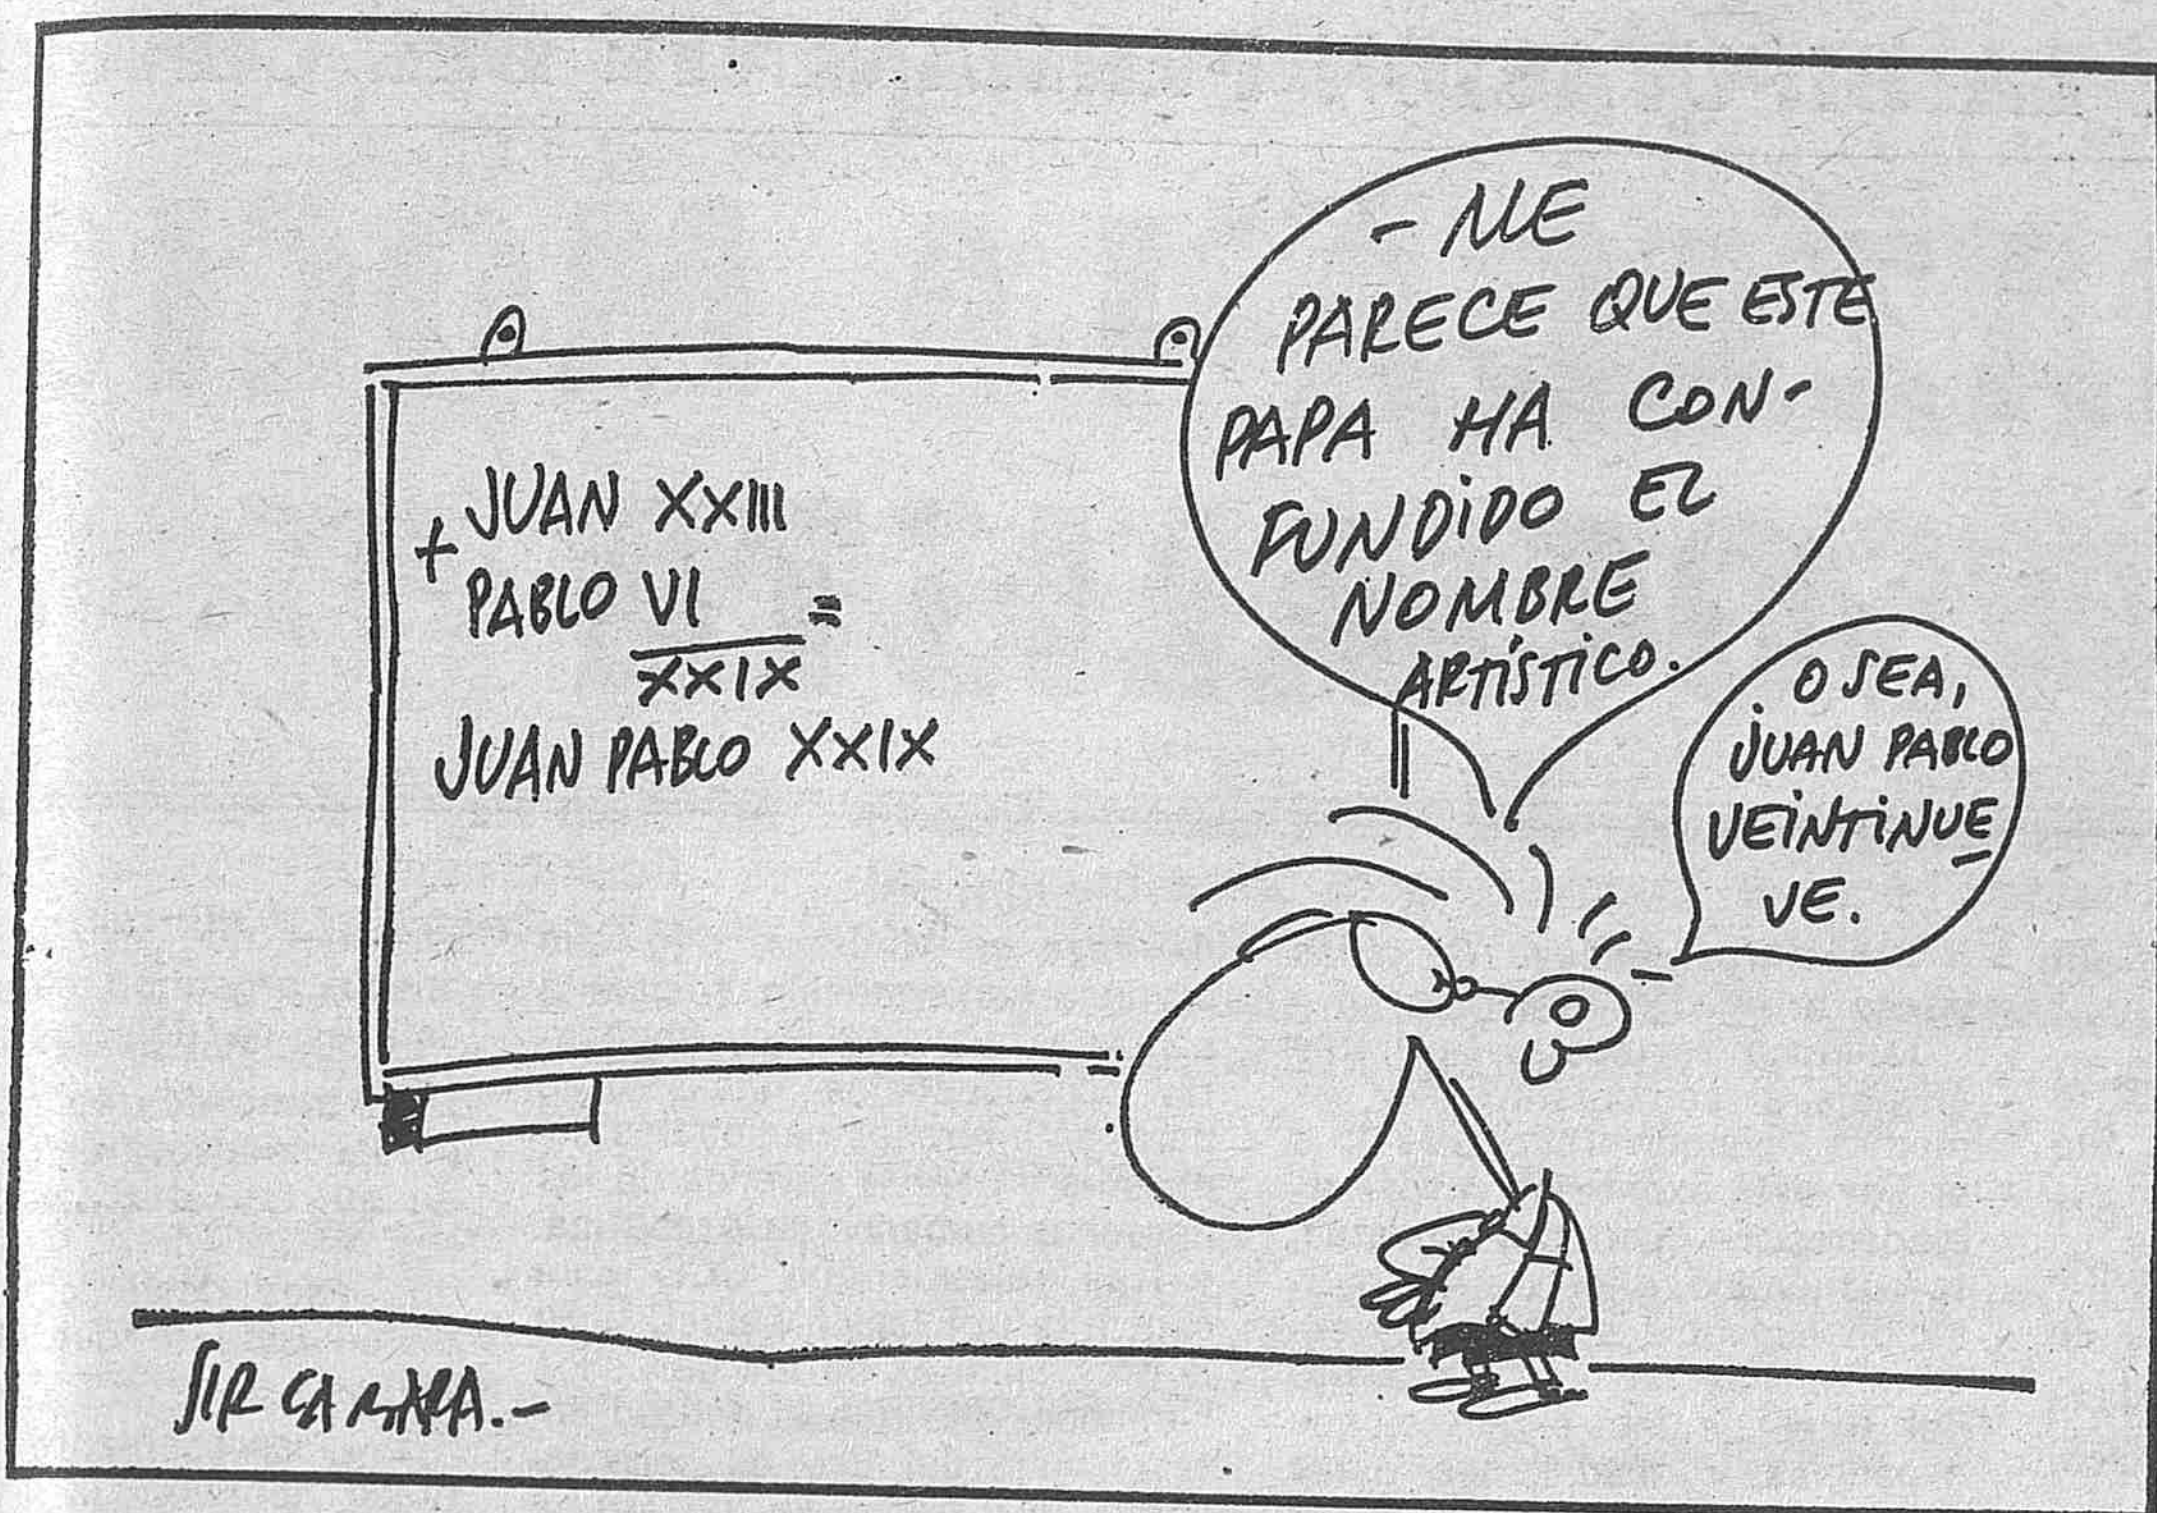 JUAN XXIII
+
PABLO VI =
XXIX
JUAN PABLO XXIX
- ME
PARECE QUE ESTE
PAPA HA CON-
FUNDIDO EL
NOMBRE
ARTÍSTICO.
O SEA,
JUAN PABLO
VEINTINUE
VE.
SIR CAMARA.-